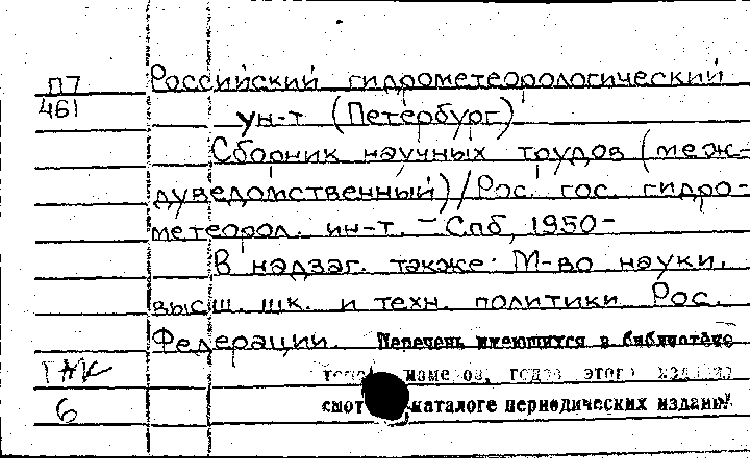 П7 Российский гидрометеорологический
461 ун-т (Петербург)
Сборник научных трудов (меж-
дуведомственный)/Рос. гос. гидро-
метеорол. ин-т. – Спб, 1950–
В надзаг. также: М-во науки,
высш. шк. и техн. политики Рос.
Федерации. Перечень имеющихся в библиотеке
номеров, годов этого издания
6 смот каталоге периодических изданий